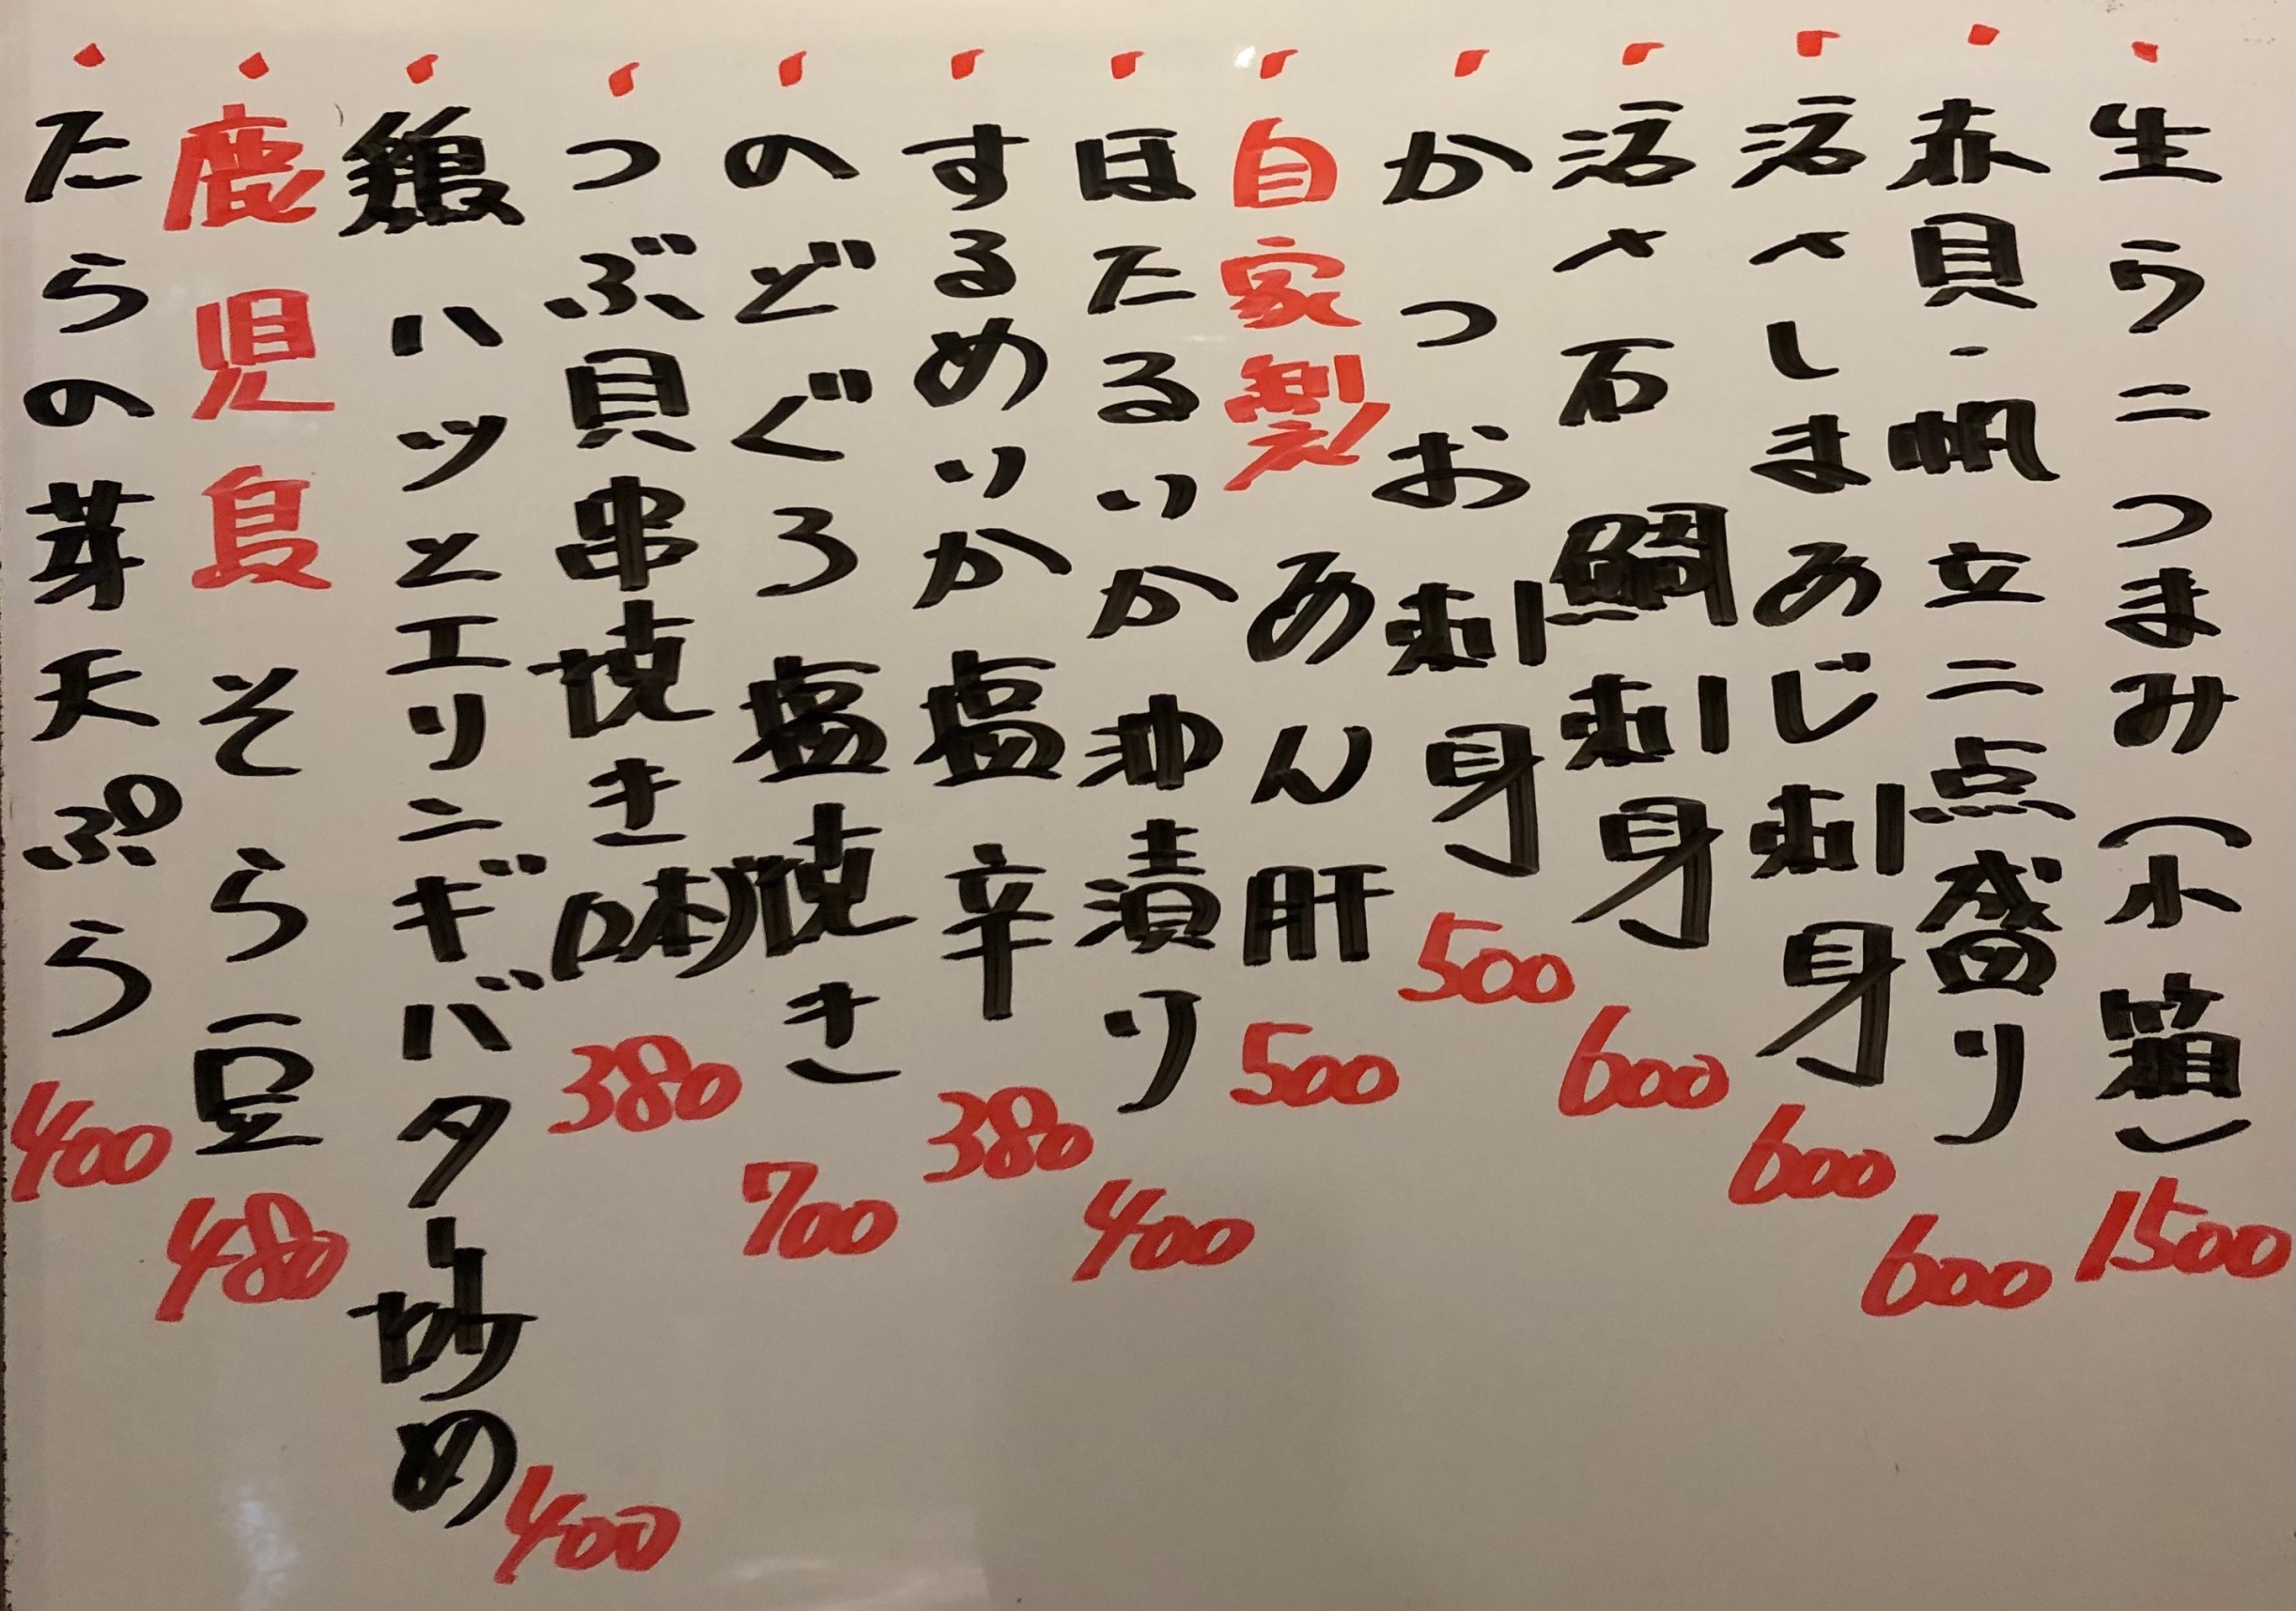 ・生ウニつまみ(小箱) 1500
・赤貝・帆立二点盛り 600
・活〆しまあじ刺身 600
・活〆石鯛刺身 600
・かつお刺身 500
・自家製あん肝 500
・ほたるいか沖漬り 400
・するめいか塩辛 380
・のどぐろ塩焼き 700
・つぶ貝串焼き(2本) 380
・鶏ハツとエリンギバター炒め 400
・鹿児島そら豆 480
・たらの芽天ぷら 400